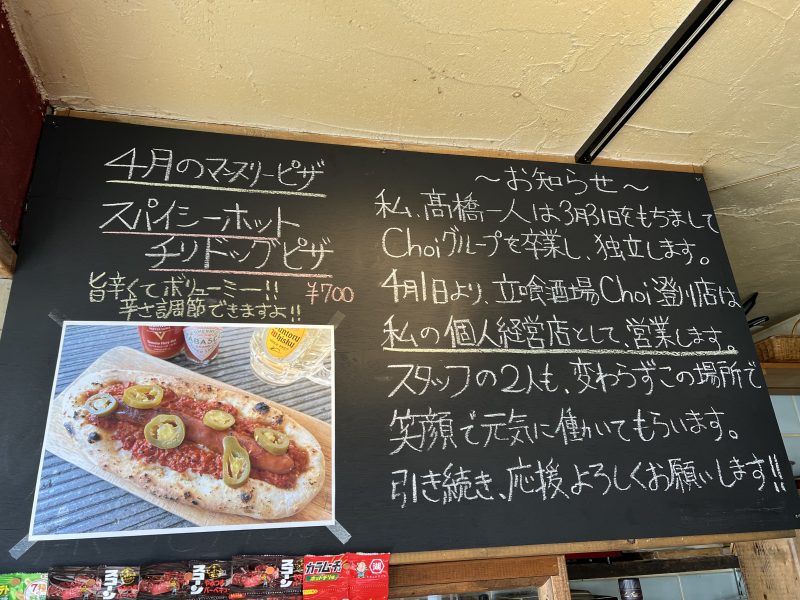 4月のマンスリーピザ
スパイシーホット
チリドッグピザ
旨辛くてボリューミー!! ¥700
辛さ調節できますよ!!
〜お知らせ〜
私、髙橋一人は3月31日をもちまして
Choiグループを卒業し、独立します。
4月1日より、立喰酒場Choi登川店は
私の個人経営店として、営業します。
スタッフの2人も、変わらずこの場所で
笑顔で元気に働いてもらいます。
引き続き、応援よろしくお願いします!!
SUNTORY
WHISKY
スコーン
スコーン
スコーン
カラムーチョ
湖池屋